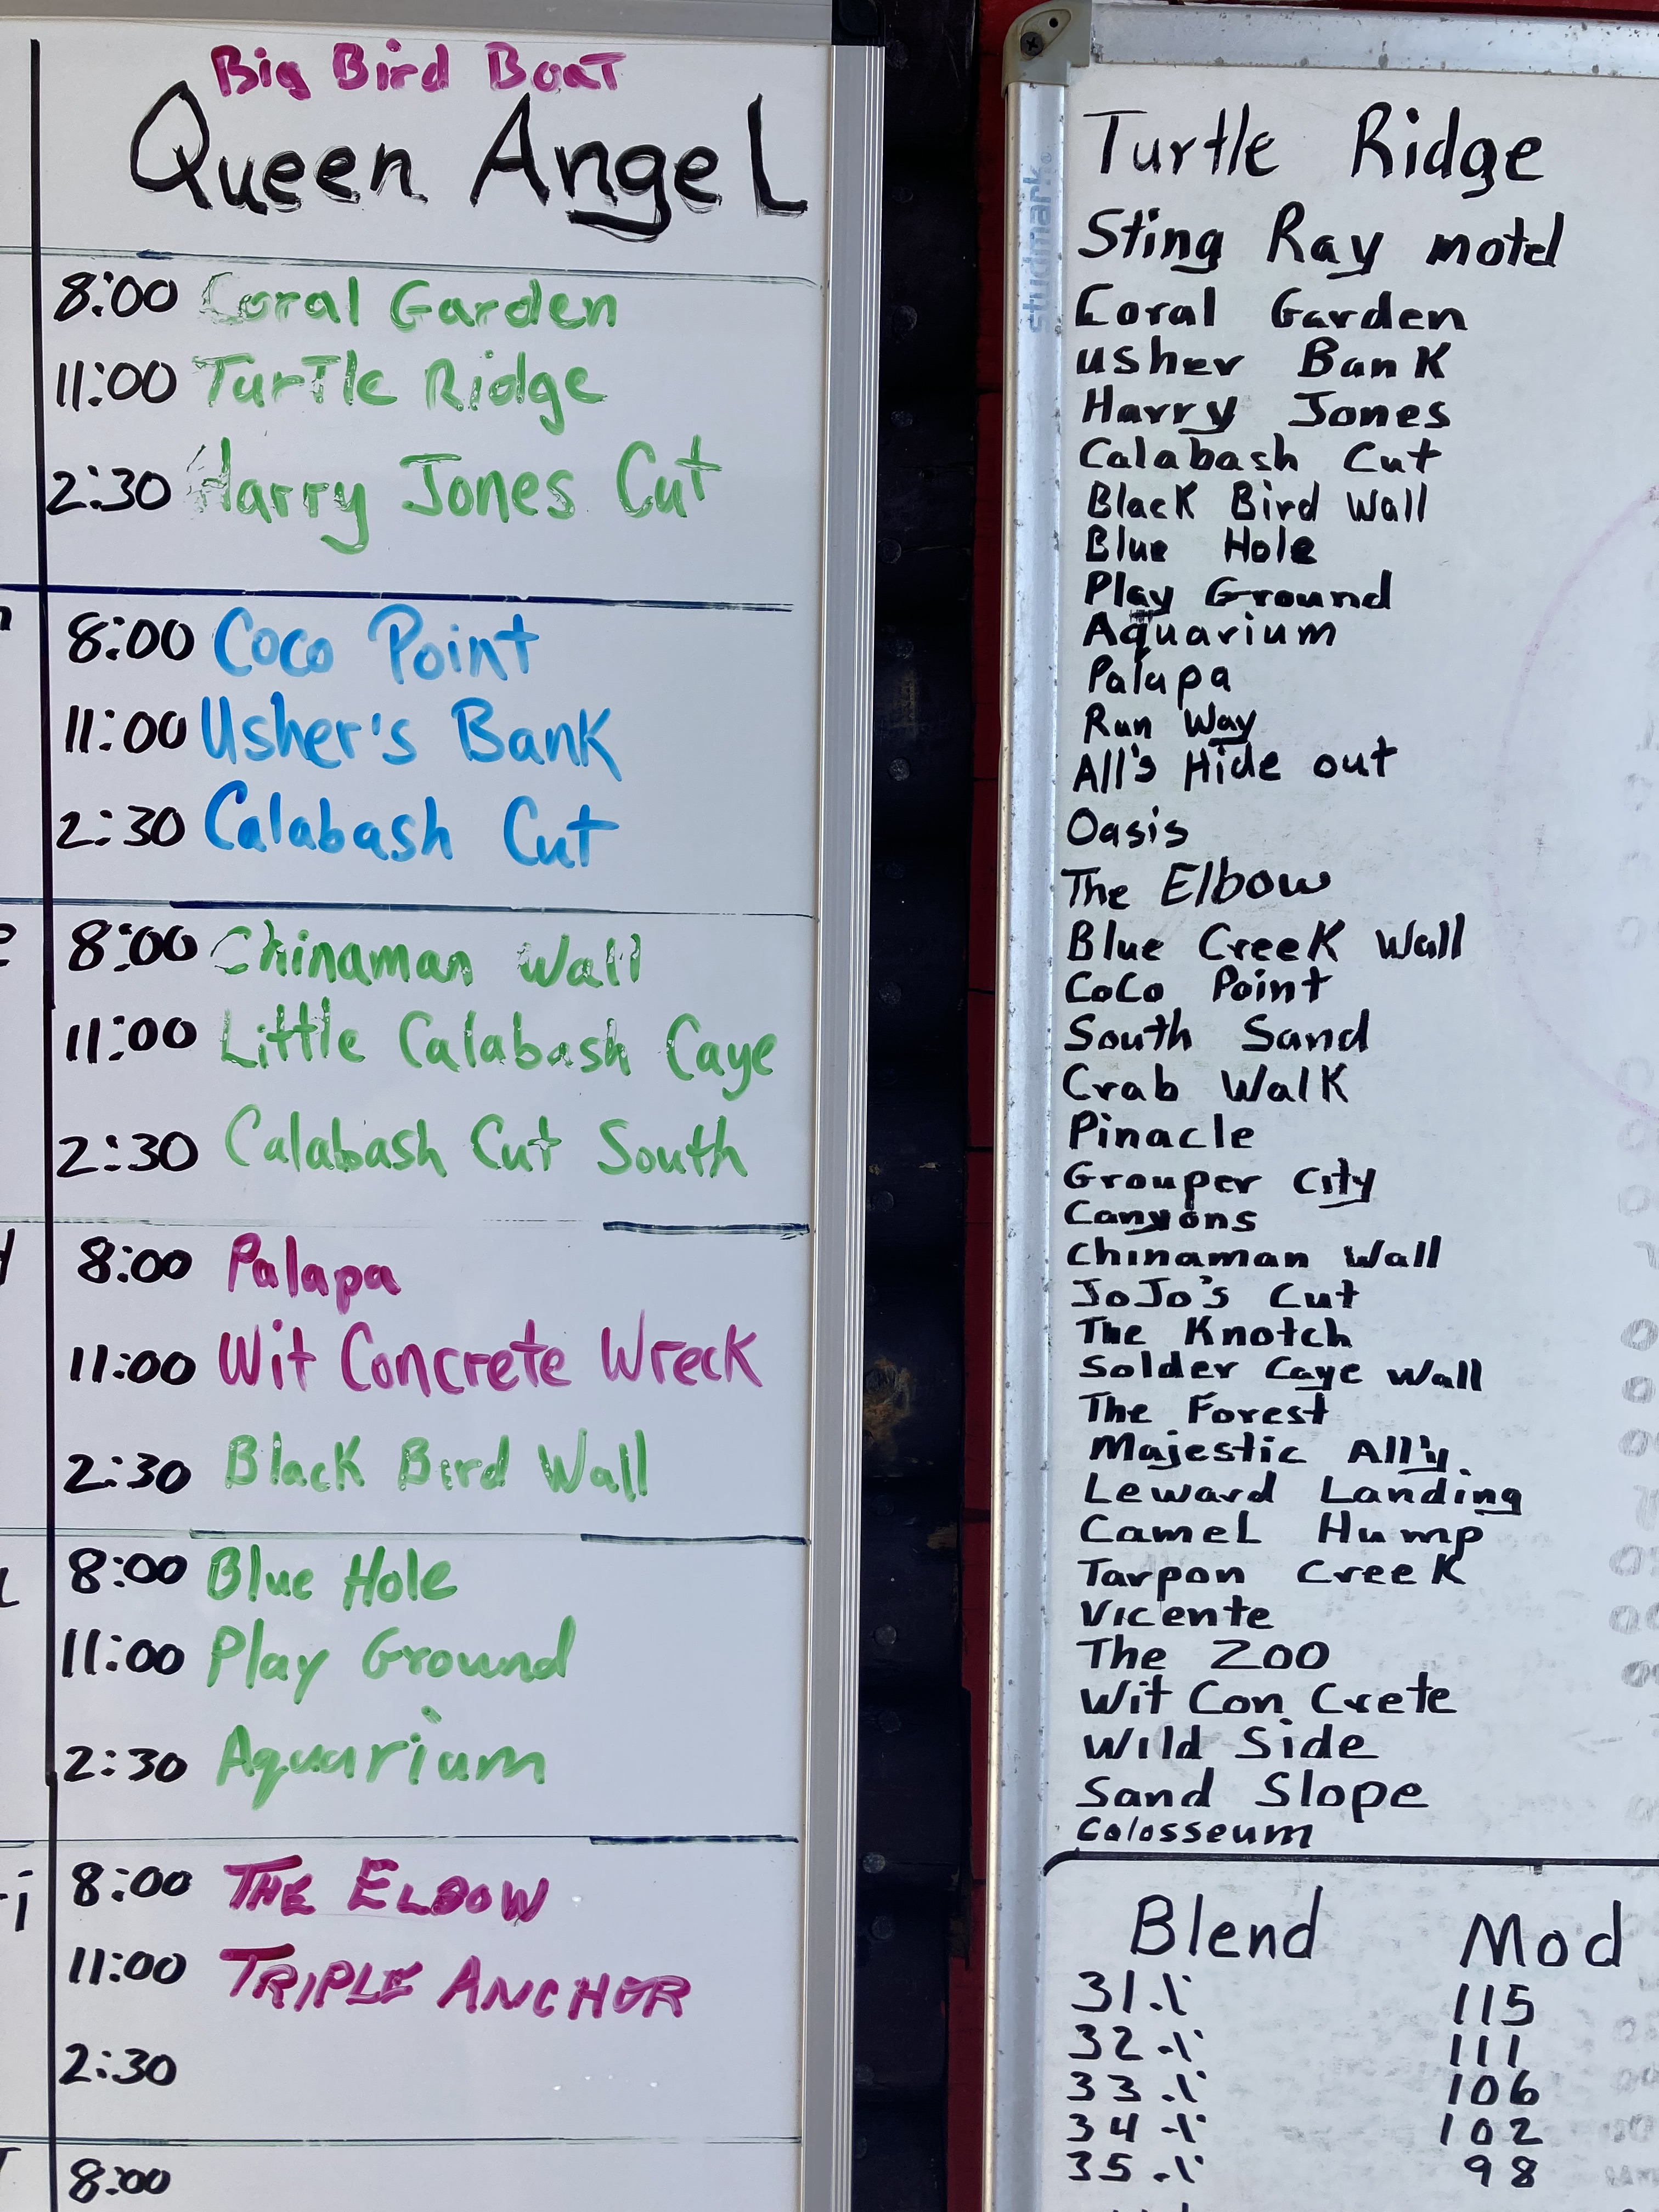 Big Bird Boat
Queen Angel
8:00 Coral Garden
11:00 Turtle Ridge
2:30 Harry Jones Cut
8:00 Coco Point
11:00 Usher's Bank
2:30 Calabash Cut
8:00 Chinaman Wall
11:00 Little Calabash Caye
2:30 Calabash Cut South
8:00 Palapa
11:00 Wit Concrete Wreck
2:30 Black Bird Wall
8:00 Blue Hole
11:00 Play Ground
2:30 Aquarium
8:00 THE ELBOW
11:00 TRIPLE ANCHOR
2:30
8:00
studmark
Turtle Ridge
Sting Ray motel
Coral Garden
usher Bank
Harry Jones
Calabash Cut
Black Bird Wall
Blue Hole
Play Ground
Aquarium
Palapa
Run Way
All's Hide out
Oasis
The Elbow
Blue Creek Wall
CoCo Point
South Sand
Crab Walk
Pinacle
Grouper City
Canyons
Chinaman Wall
JoJo's Cut
The Knotch
Solder Caye Wall
The Forest
Majestic All'y.
Leward Landing
Camel Hump
Tarpon Creek
Vicente
The Zoo
Wit Con Crete
Wild Side
Sand Slope
Colosseum
Blend Mod
31% 115
32% 111
33% 106
34% 102
35% 98